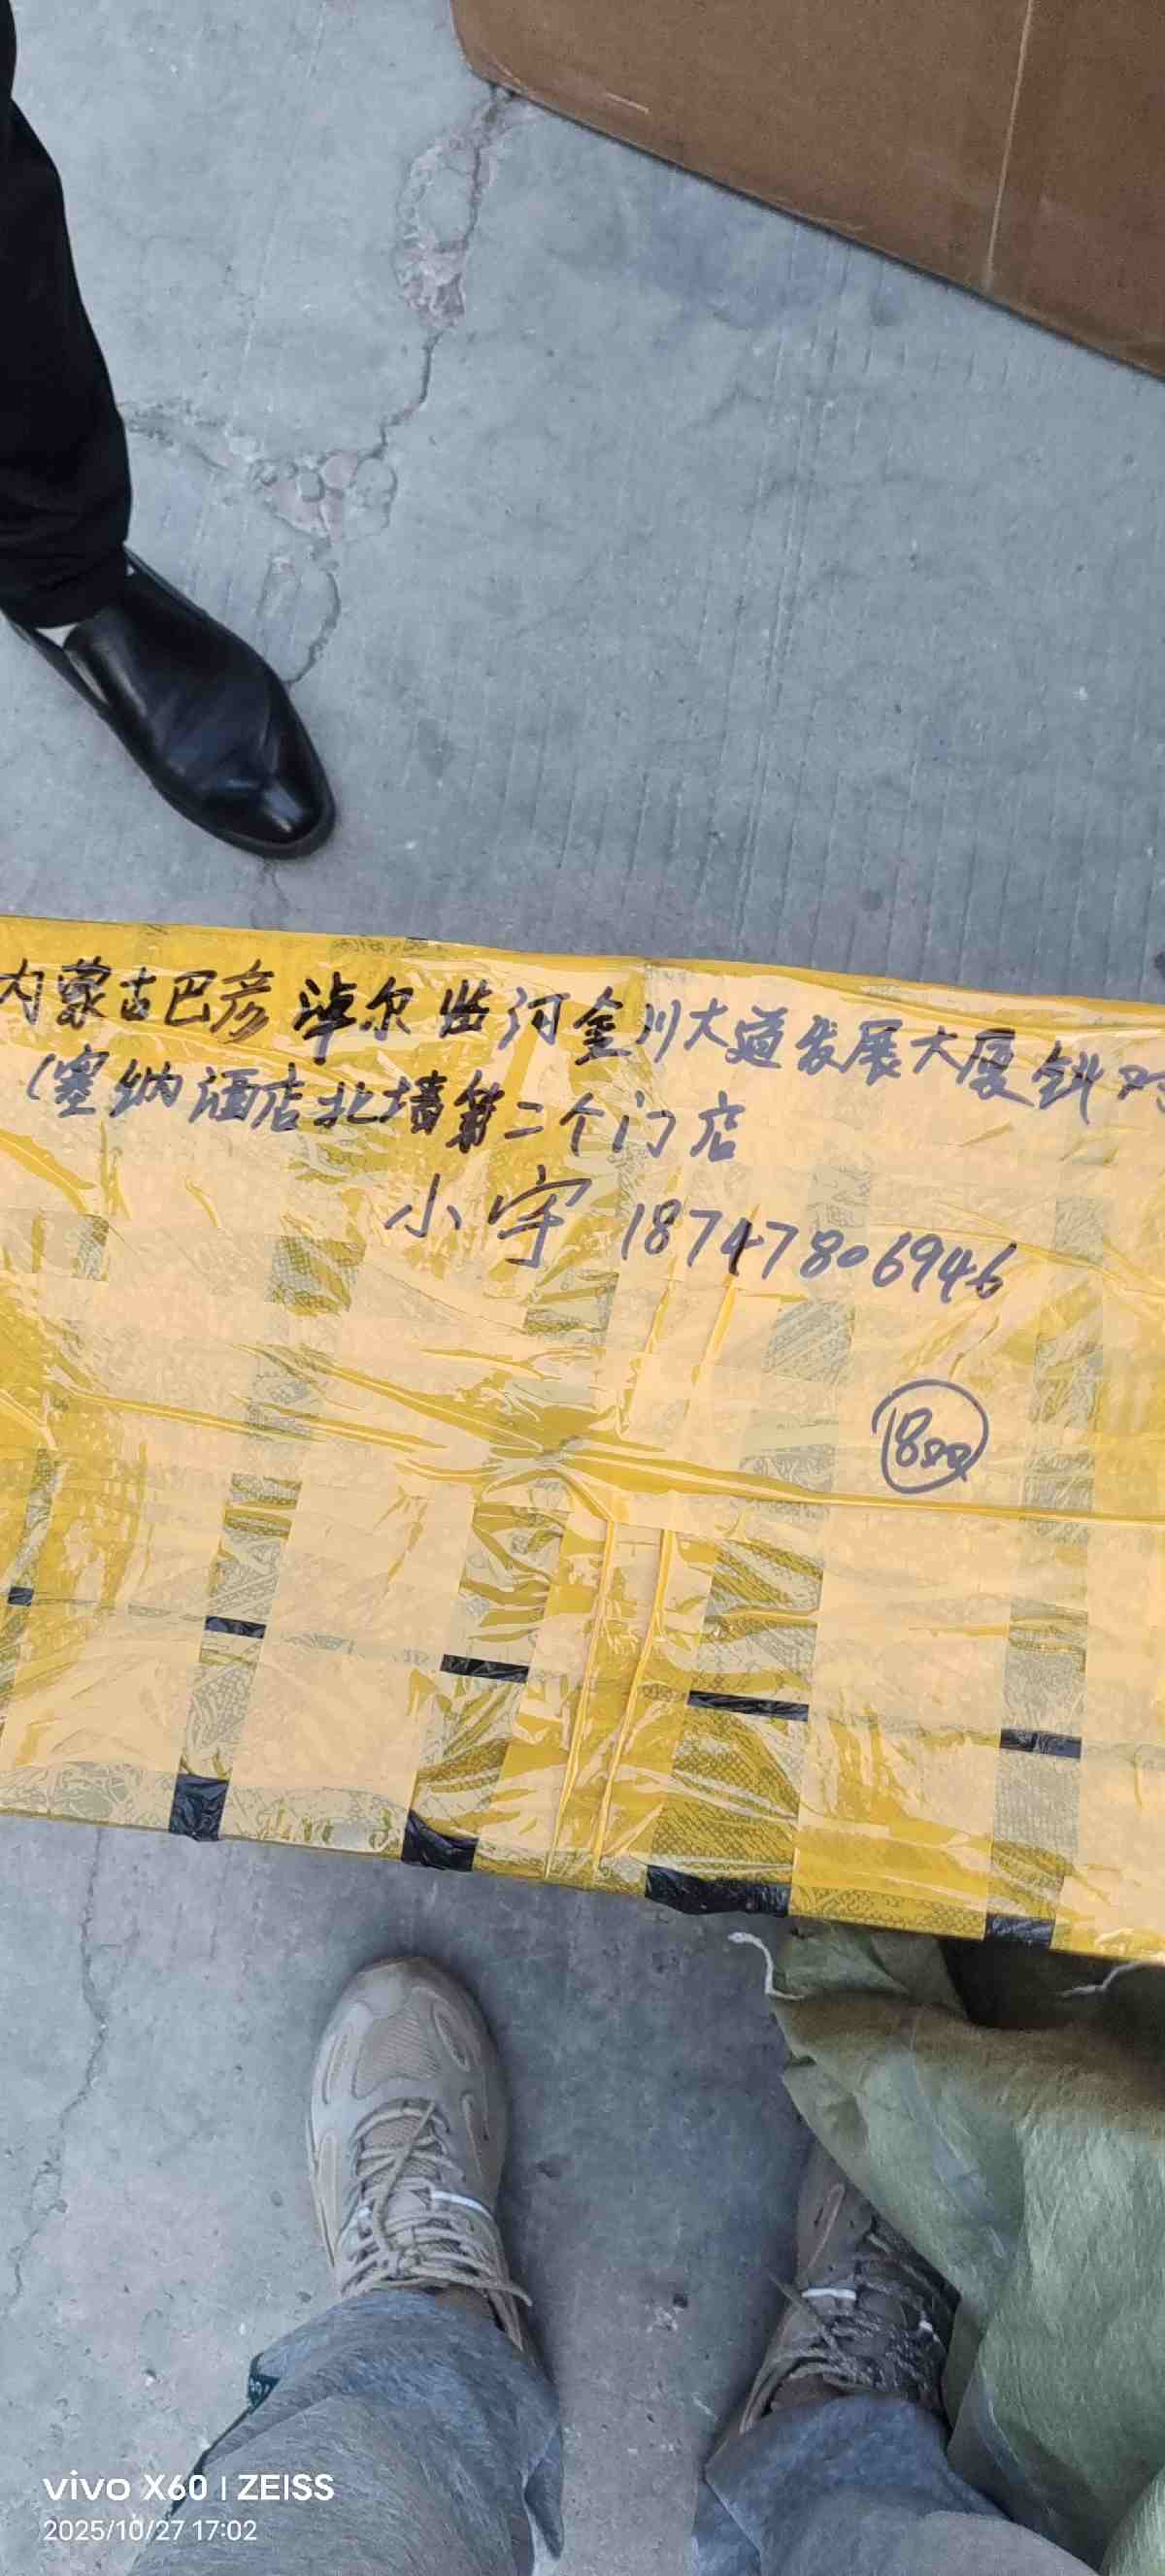 内蒙古巴彦淖尔临河金川大道发展大厦斜对
(塞纳酒店北墙第二个门店
小宇 18747806946
1800
vivo X60 | ZEISS
2025/10/27 17:02